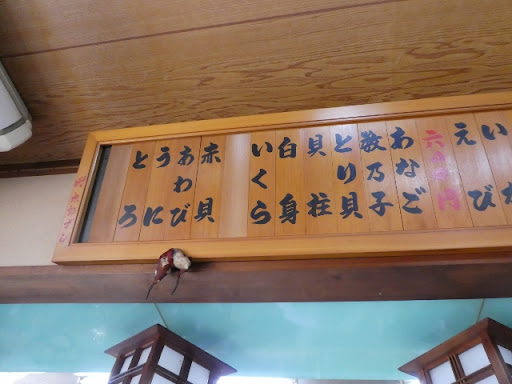 いか
えび
六百円
あなご
数乃子
とり貝
貝柱
白身
いくら
赤貝
あわび
うに
とろ